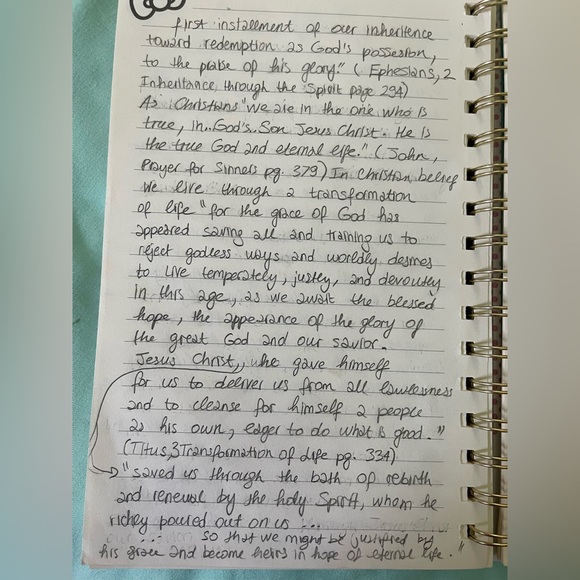 first installment of our inheritence
toward redemption as God's possesion,
to the praise of his glory." (Ephesians, 2
Inheritance through the Spirit page 294)
As Christians "we are in the one who is
true, in..God's..Son Jesus Christ. He is
the true God and eternal life." (John,
Prayer for Sinners pg. 379) In christian belief
we live through a transformation
of life "for the grace of God has
appeared saving all and training us to
reject godless ways and worldly desires
to live temperately, justly, and devoutly
in this age, as we await the blessed
hope, the appearance of the glory of
the great God and our savior.
Jesus Christ,, who gave himself
for us to deliver us from all lawlessness
and to cleanse for himself a people
as his own, eager to do what is good."
(Titus,3Transformation of Life pg. 334)
"saved us through the bath of rebirth
and renewal by the holy Spirit, whom he
richly poured out on us ...
... so that we might be justified by
his grace and become heirs in hope of eternal life."